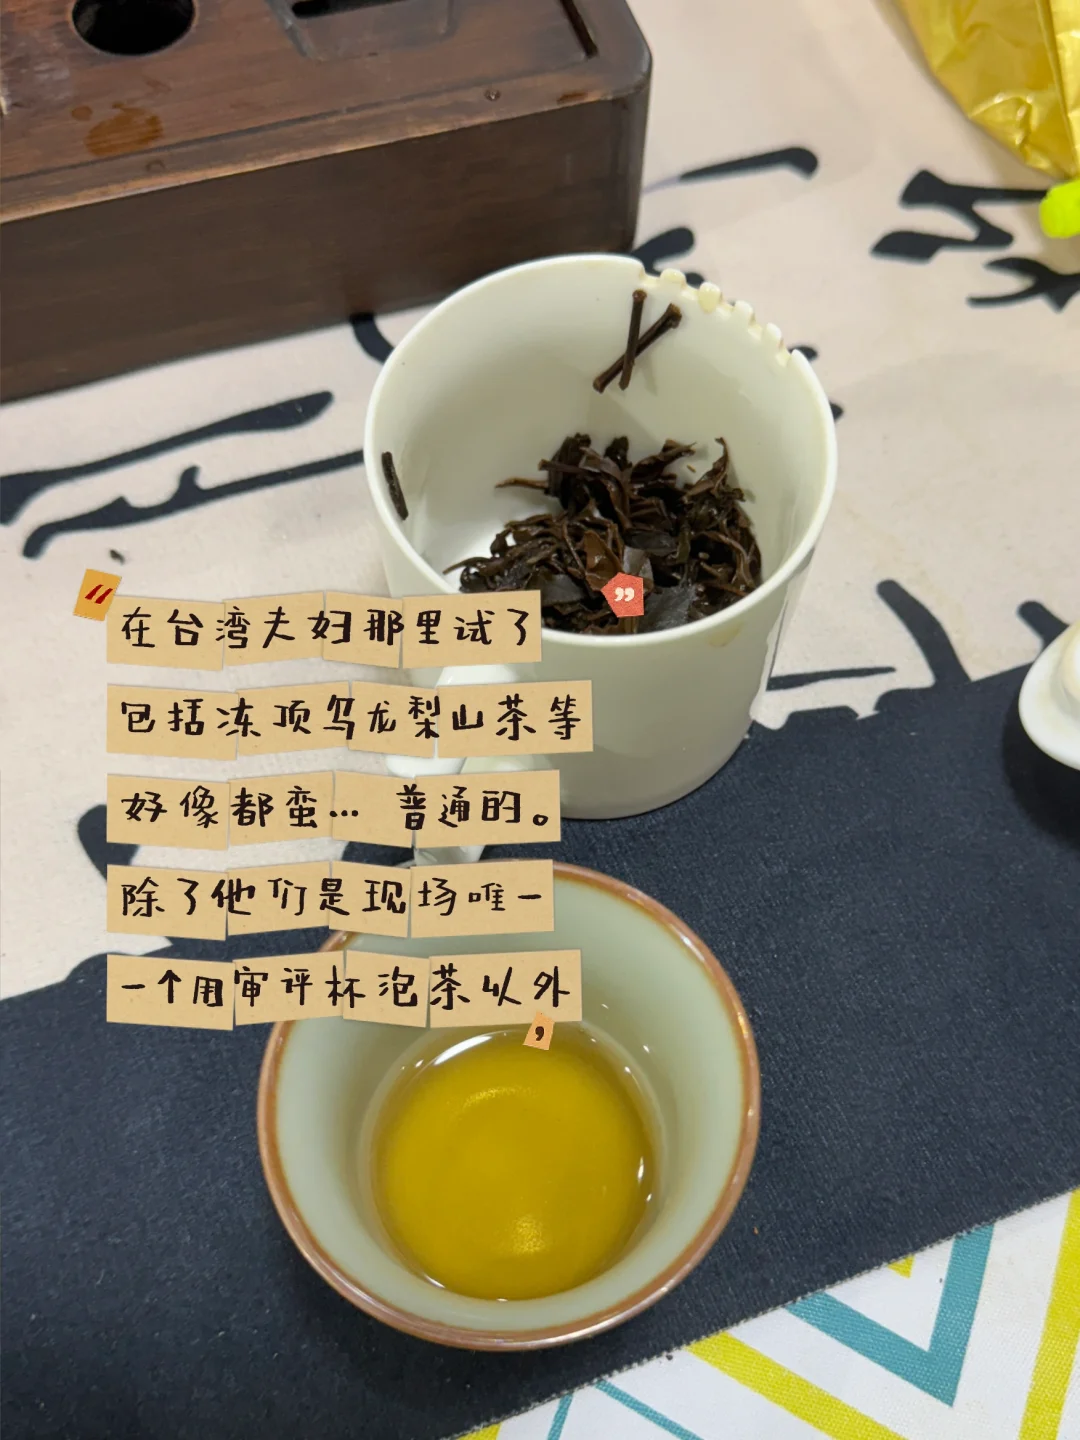 在台湾夫妇那里试了
包括冻顶乌龙梨山茶等
好像都蛮… 普通的。
除了他们是现场唯一
一个用审评杯泡茶以外